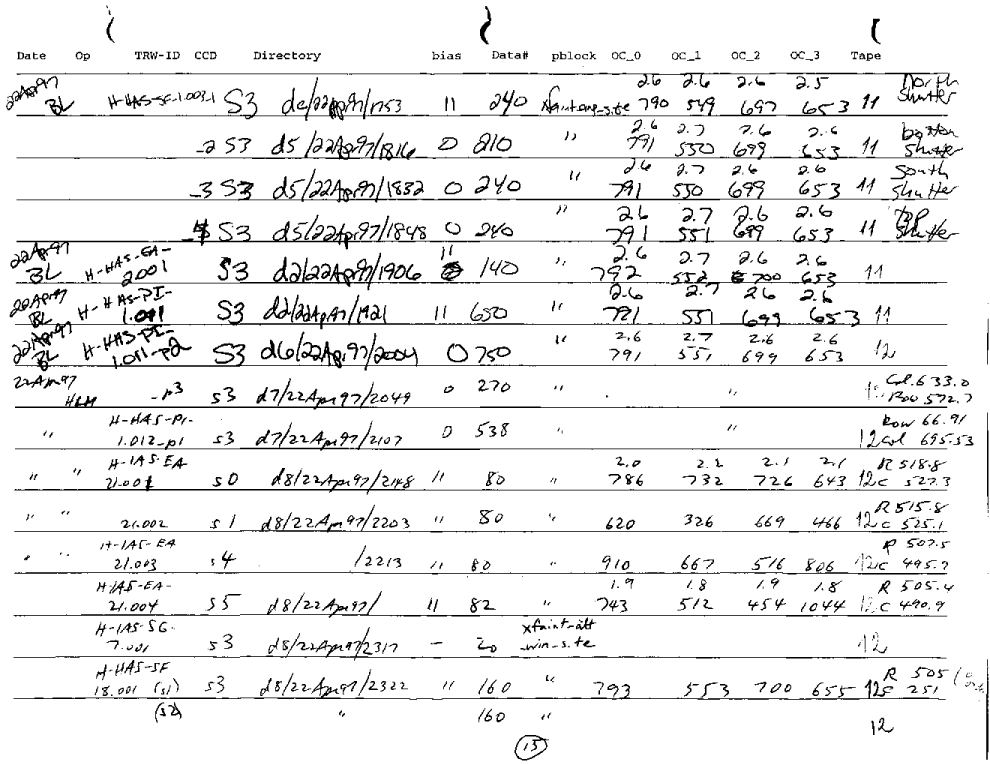 Date Op TRW-ID CCD Directory bias Data# pblock OC_0 OC_1 OC_2 OC_3 Tape
22Apr97 2.6 2.6 2.6 2.5 North
BL H-HAS-SF-1.003-1 S3 /22Apr97/1753 11 240 790 549 697 653 11 Shutter
2.6 2.7 2.6 2.6 bottom
-2 S3 d5/22Apr97/1816 0 210 " 791 550 699 653 11 Shutter
2.6 2.7 2.6 2.6 South
-3 S3 d5/22Apr97/1832 0 240 " 791 550 699 653 11 Shutter
2.6 2.7 2.6 2.6 Top
-4 S3 d5/22Apr97/1848 0 240 " 791 551 699 653 11 Shutter
22Apr97 H-HAS-EA- 11 2.6 2.7 2.6 2.6
BL 2.001 S3 d2/22Apr97/1906 140 " 792 552 700 653 11
H-HAS-PI- 2.6 2.7 2.6 2.6
BL 1.011 S3 d2/22Apr97/1921 11 650 " 791 551 699 653 11
22Apr97 H-HAS-PI- 2.6 2.7 2.6 2.6
BL 1.011-p2 S3 d6/22Apr97/2004 0 750 " 791 551 699 653 12
22Apr97 Col. 633.0
HLM -p3 s3 d7/22Apr97/2049 0 270 " " Row 572.7
H-HAS-PI- Row 66.91
" 1.012-p1 s3 d7/22Apr97/2107 0 538 " " 12 Col 695.53
H-IAS-EA- 2.0 2.2 2.1 2.1 R 518.8
" " 21.001 s0 d8/22Apr97/2148 11 80 " 786 732 726 643 12 C 527.3
R 515.8
" " 21.002 s1 d8/22Apr97/2203 11 80 " 620 326 669 466 12 C 525.1
H-IAS-EA R 507.5
" " 21.003 s4 /2213 11 80 " 910 667 516 806 12 C 495.7
H-IAS-EA- 1.9 1.8 1.9 1.8 R 505.4
21.004 s5 d8/22Apr97/ 11 82 " 743 512 454 1044 12 C 490.9
H-IAS-SG- xfaint-att
7.001 s3 d8/22Apr97/2317 - 20 -win-site 12
H-HAS-SF R 505
18.001 (s1) s3 d8/22Apr97/2322 11 160 " 793 553 700 655 12 251
(s2) " 160 " 12
15